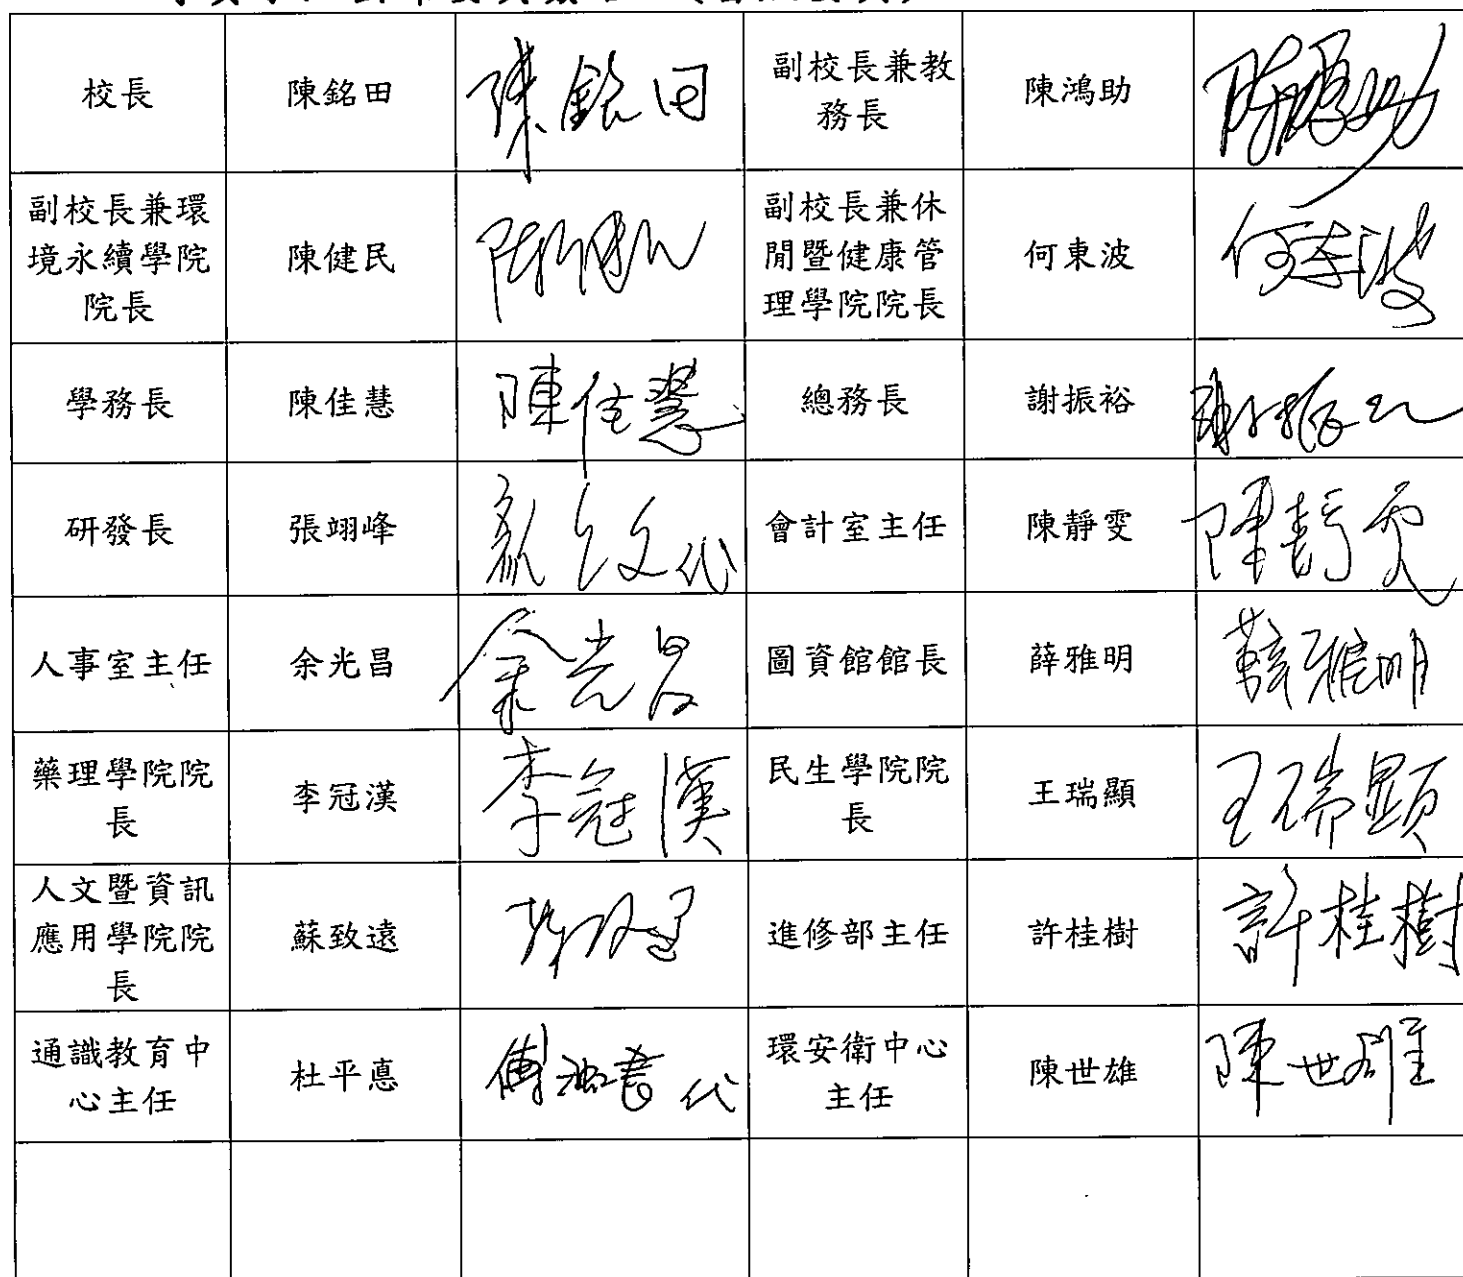 校長 陳銘田 陳銘田 副校長兼教務長 陳鴻助 陳鴻助
副校長兼環境永續學院院長 陳健民 陳健民 副校長兼休閒暨健康管理學院院長 何東波 何東波
學務長 陳佳慧 陳佳慧 總務長 謝振裕 謝振裕
研發長 張翊峰 代 會計室主任 陳靜雯 陳靜雯
人事室主任 余光昌 余光昌 圖資館館長 薛雅明 薛雅明
藥理學院院長 李冠漢 李冠漢 民生學院院長 王瑞顯 王瑞顯
人文暨資訊應用學院院長 蘇致遠 蘇致遠 進修部主任 許桂樹 許桂樹
通識教育中心主任 杜平悳 代 環安衛中心主任 陳世雄 陳世雄